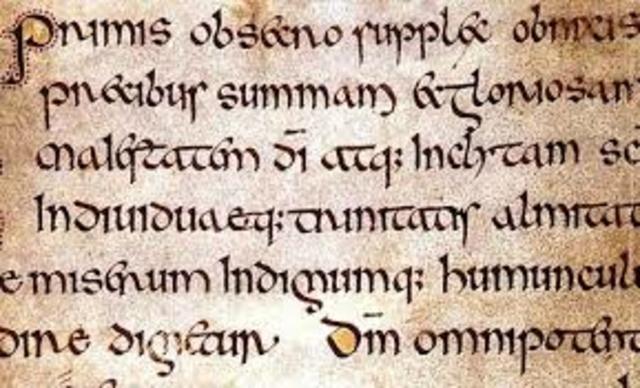 Primis obsecro supplex obnixis
precibus summam et gloriosam
maiestatem dī atq; inclytam
Indiuiduaeq; trinitatis almitat
e miserum Indignumq; humuncul
dine dignetur Dm̄ omnipotent